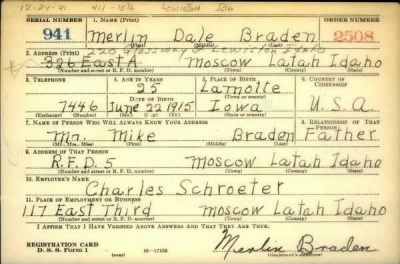 12-24-41 411-15th Lewiston Ida
SERIAL NUMBER 1. NAME (Print) ORDER NUMBER
941 Merlin Dale Braden 2508
(First) (Middle) (Last)
2. ADDRESS (Print) Lewiston Idaho
326 East A Moscow Latah Idaho
(Number and street or R. F. D. number) (Town) (County) (State)
3. TELEPHONE 4. AGE IN YEARS 5. PLACE OF BIRTH 6. COUNTRY OF CITIZENSHIP
25 Lamotte
DATE OF BIRTH (Town or county)
7446 June 22 1915 Iowa U.S.A.
(Exchange) (Number) (Mo.) (Day) (Yr.) (State or country)
7. NAME OF PERSON WHO WILL ALWAYS KNOW YOUR ADDRESS 8. RELATIONSHIP OF THAT PERSON
Mr. Mike Braden Father
(Mr., Mrs., Miss) (First) (Middle) (Last)
9. ADDRESS OF THAT PERSON
R.F.D. 5 Moscow Latah Idaho
(Number and street or R. F. D. number) (Town) (County) (State)
10. EMPLOYER'S NAME
Charles Schroeter
11. PLACE OF EMPLOYMENT OR BUSINESS
117 East Third Moscow Latah Idaho
(Number and street or R. F. D. number) (Town) (County) (State)
I AFFIRM THAT I HAVE VERIFIED ABOVE ANSWERS AND THAT THEY ARE TRUE.
REGISTRATION CARD
D. S. S. Form 1 16-17105 Merlin Braden